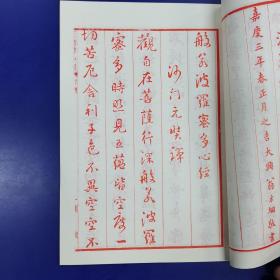 嘉慶三年春正月之吉大興翁方綱敬書
般若波羅蜜多心經
沙門元奘譯
觀自在菩薩行深般若波羅
蜜多時照見五蘊皆空度一
切苦厄舍利子色不異空空不